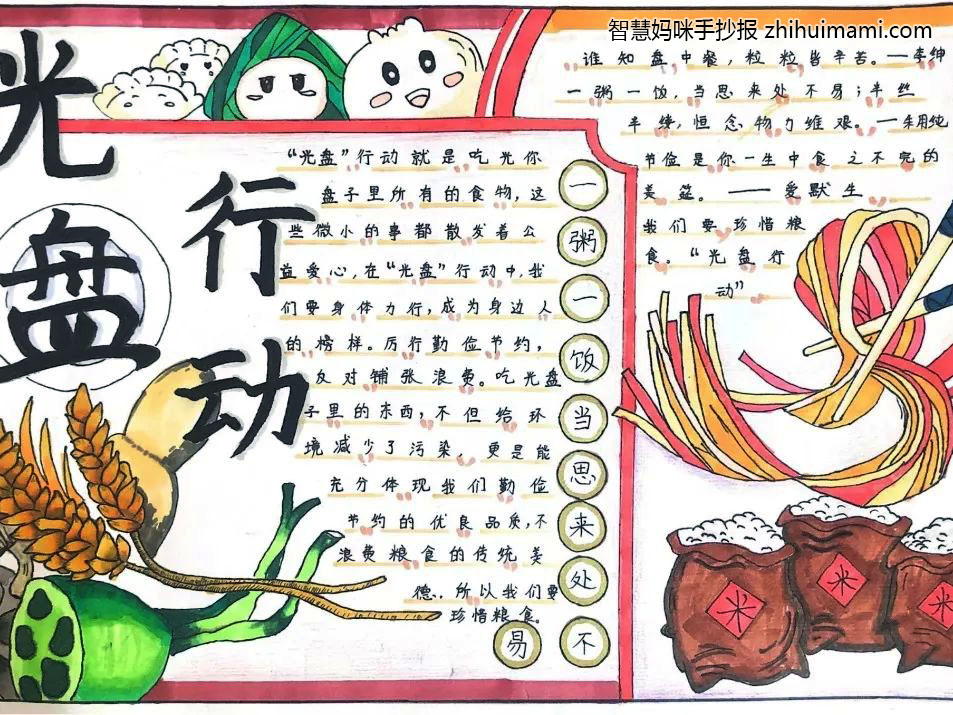 智慧妈咪手抄报 zhihuimami.com
光盘
行动
"光盘"行动就是吃光你
盘子里所有的食物,这
些微小的事都散发着公
益爱心,在"光盘"行动中,我
们要身体力行,成为身边人
的榜样。厉行勤俭节约,
反对铺张浪费。吃光盘
子里的东西,不但给环
境减少了污染,更是能
充分体现我们勤俭
节约的优良品质,不
浪费粮食的传统美
德.,所以我们要
珍惜粮食。
一
粥
一
饭
当
思
来
处
不
易
谁知盘中餐,粒粒皆辛苦。—李绅
一粥一饭,当思来处不易;半丝
半缕,恒念物力维艰。—朱用纯
节俭是你一生中食之不完的
美筵。——爱默生
我们要珍惜粮
食。"光盘行
动"
米
米
米